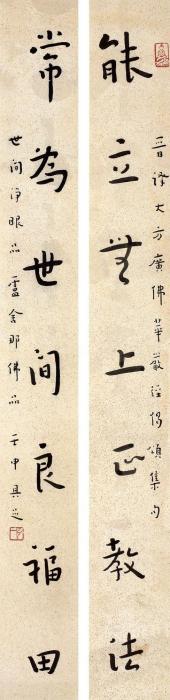 能立無上正教法
晉譯大方廣佛華嚴經偈頌集句
常為世間良福田
世间淨眼品 盧舍那佛品 壬申具足